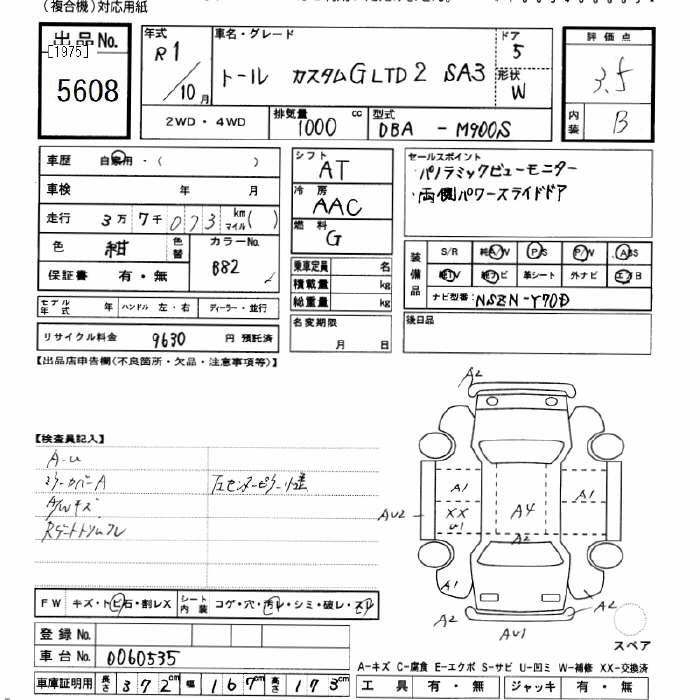 (複合機)対応用紙
出品No.
[1975]
5608
年式
R1/10月
車名・グレード
トール カスタムGLTD2 SA3
ドア
5
形状
W
評価点
3.5
内装
B
2WD・4WD
排気量 1000 cc
型式 DBA - M900S
車歴 自家用・( )
車検 年 月
走行 3万7千073 km マイル( )
色 紺 色替
カラーNo. B82
保証書 有・無
モデル年式 年 ハンドル 左・右 ディーラー・並行
リサイクル料金 9630 円 預託済
シフト
AT
冷房
AAC
燃料
G
乗車定員 名
積載量 kg
総重量 kg
名変期限
月 日
セールスポイント
・パノラミックビューモニター
・両側パワースライドドア
装備品
S/R 純A/W P/S P/W ABS
純TV 純ナビ 革シート 外ナビ エアB
ナビ型番 NSZN-Y70D
後日品
【出品店申告欄(不良箇所・欠品・注意事項等)】
【検査員記入】
A-u
ミラーカバーA
A/Wキズ
Rゲートトリムスレ
A2
A1
A1
XX
U1
A4
AU2
A2
A1
A2
AU1
A2
スペア
FW キズ・トビ石・割レX
シート内装 コゲ・穴・汚レ・シミ・破レ・スレ
登録No.
車台No. 0060535
車庫証明用 長さ 372cm 幅 167cm 高さ 173cm
A-キズ C-腐食 E-エクボ S-サビ U-凹ミ W-補修 XX-交換済
工具 有・無 ジャッキ 有・無